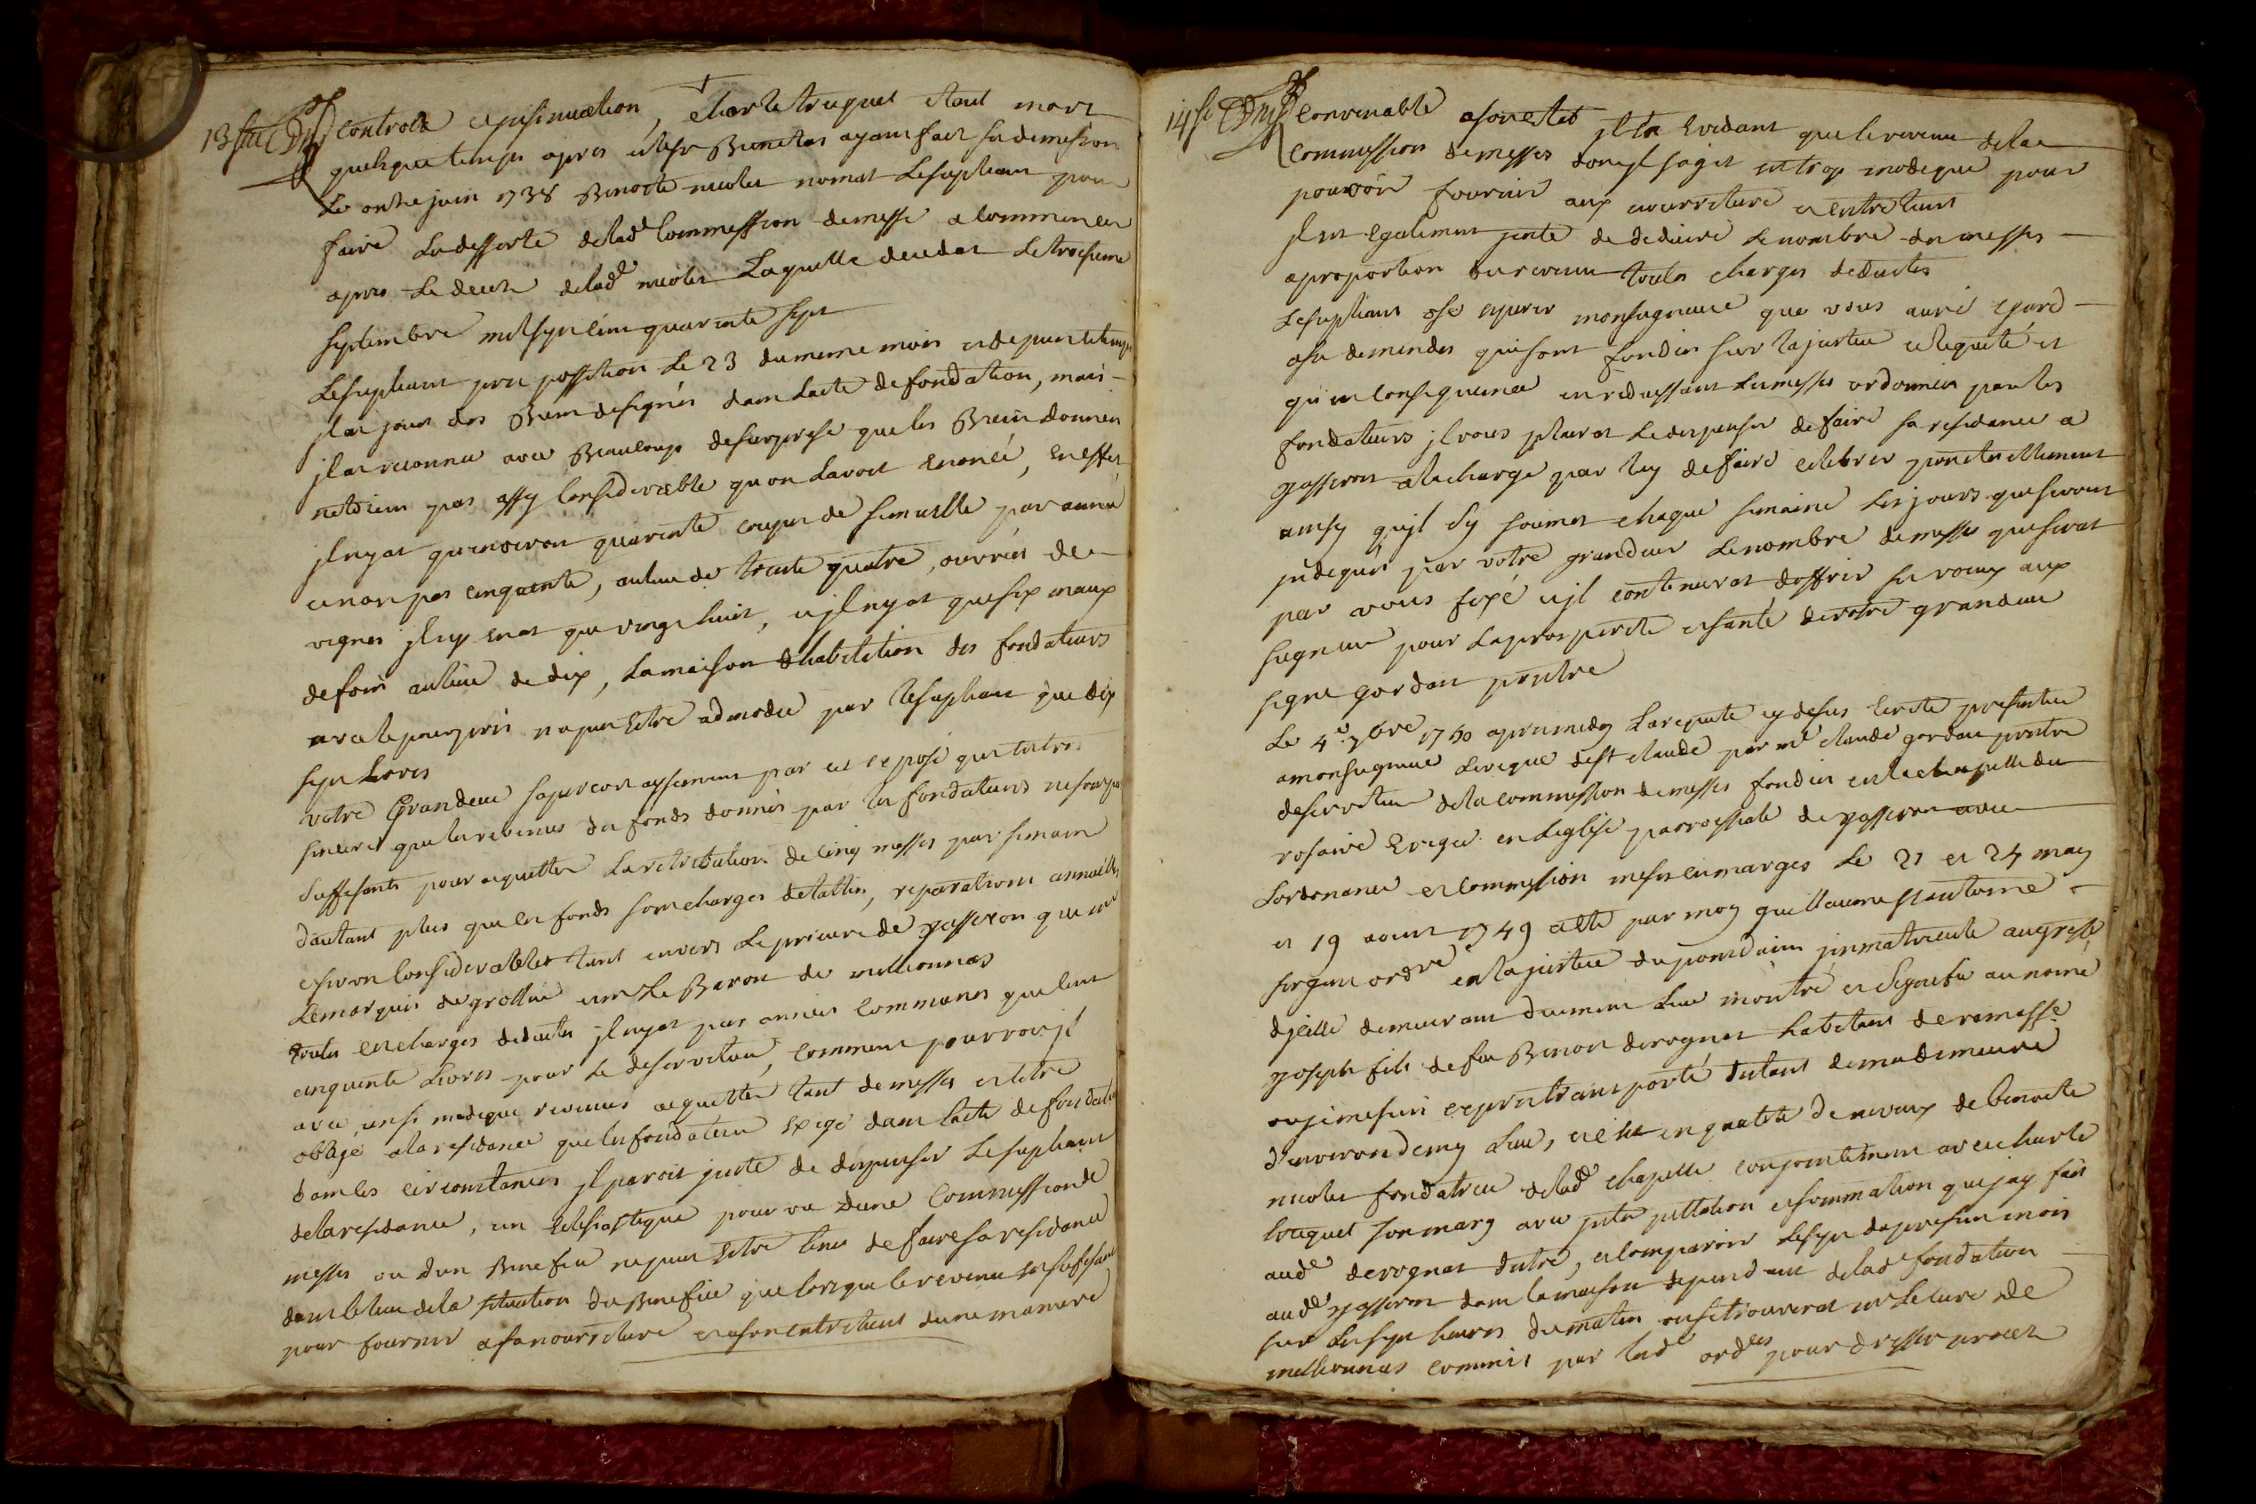 13
controlle et insinuation, charle truquet etant mort
quelque temps apres et le sr Bunetas ayant fait sa demission
Le onze juin 1738 Benoite nicolet nomat Le supliant pour
faire La desserte de lad.e Commission de messe a Commencer
apres Le deces de lad.e nicolet Laquelle decedat Le troisieme
septembre mil sept cent quarante sept
Le supliant prit possession Le 23 du meme mois et depuis ce temps
jl at jouit des Biens designés dans Lacte de fondation, mais
jl at reconnu avec Beaucoup de surprise que les Biens donnés
netoient pas assy Considerable qu on Lavoit enoncé, en effet
jl nyat qu environ quarante coupes de semaille par année
et non pas cinquante, au lieu de trente quatre ouvrées de
vignes jl ny en at que vingt huit, et jl nyat que six maux
de foin au lieu de dix, La maison dhabitation des fondateurs
avec le pourpris na pus Etre admodié par le supliant que dix
sept Livres
votre Grandeur sapercoit aysement par cet exposé que tres
sincere que les revenus des fonds donnés par les fondateurs ne sont pas
suffisants pour acquitter La retribution de cinq messes par semaine
dautant plus que ces fonds sont charges de tailles, reparations annuelles
et servis Considerables tant envers Le prieuré de yasseron que mr
Le marquis de grollié et mr Le Baron de millionnas
toutes ces charges deduites jl nyat pas années Communes que cent
cinquante Livres pour Le deserviteur, Comment pourroit jl
avec un si modique revenus acquitter tant de messes et etre
obligé a la residance que les fondateurs Exigé dans Lacte de fondation
dans ces circonstances jl paroit juste de dispenser Le supliant
de la residance, un Eclesiastique pourvu dune Commission de
messes ou dun Benefice ne peut Etre tenus de faire sa residance
dans le lieu de la situation du Benefice que lorsque le revenu est sufisant
pour fournir a sa nourriture et a son entretient dune maniere
14
Convenable a son etat jl est Evidant que le revenu de la
Commission de messes dont jl sagit est trop modique pour
pouvoir fournir aux nourriture et entretient
jl est egalement juste de deduire Le nombre des messes
a proportion du revenu toutes charges deduites
Le supliant ose esperer monseigneur que vous auré egard
a sa demandes qui sont fondées sur la justice et lequité et
qu en Consequence en reduissant Les messes ordonnées par les
fondateurs jl vous plairat Le dispenser de faire sa residance a
yasseron a la charge par luy de faire celebrer ponctuellement
ainsy qujl sy soumet chaque semaine Les jours qui seront
indiqués par votre grandeur Le nombre de messes qui serat
par vous fixé et jl continuerat doffrir ses voeux aux
seigneur pour La prosperité et santé de votre grandeur
signé gordan prestre
Le 4e 7bre 1750 apres midy La requete cy dessus Ecrite presentée
a monseigneur Leveque de st claude par mr claude gordan prestre
deserviteur de la Commission de messes fondée en la chapelle du
rosaire Erigée en Leglise parroissiale de yasseron avec
Lordonance et Commission mises en marges Le 21 et 24 may
et 19 aoust 1749 a eté par moy guillaume
sergent ord.re en la justice du pondain jmmatriculé au greffe
dicelle demeurant du meme Lieu montré et signifié au nomé
joseph fils de feu Benoit derognat habitant de ramasse
ou je me suis expres transporté distant de ma demeure
denviron demy Lieu, et est en qualité de neveux de benoite
nicolet fondatrice de lad.e chapelle conjointement avec charle
truquet son mary avec jnterpellation et sommation que jay fait
aud.t derognat detre, et Comparoir Le sept du present mois
aud.t yasseron dans la maison dependant de lad.e fondation
sur Les sept heures du matin ou se trouverat mr Le Curé de
millionnas commis par lesd. ord.ces pour dresser procez